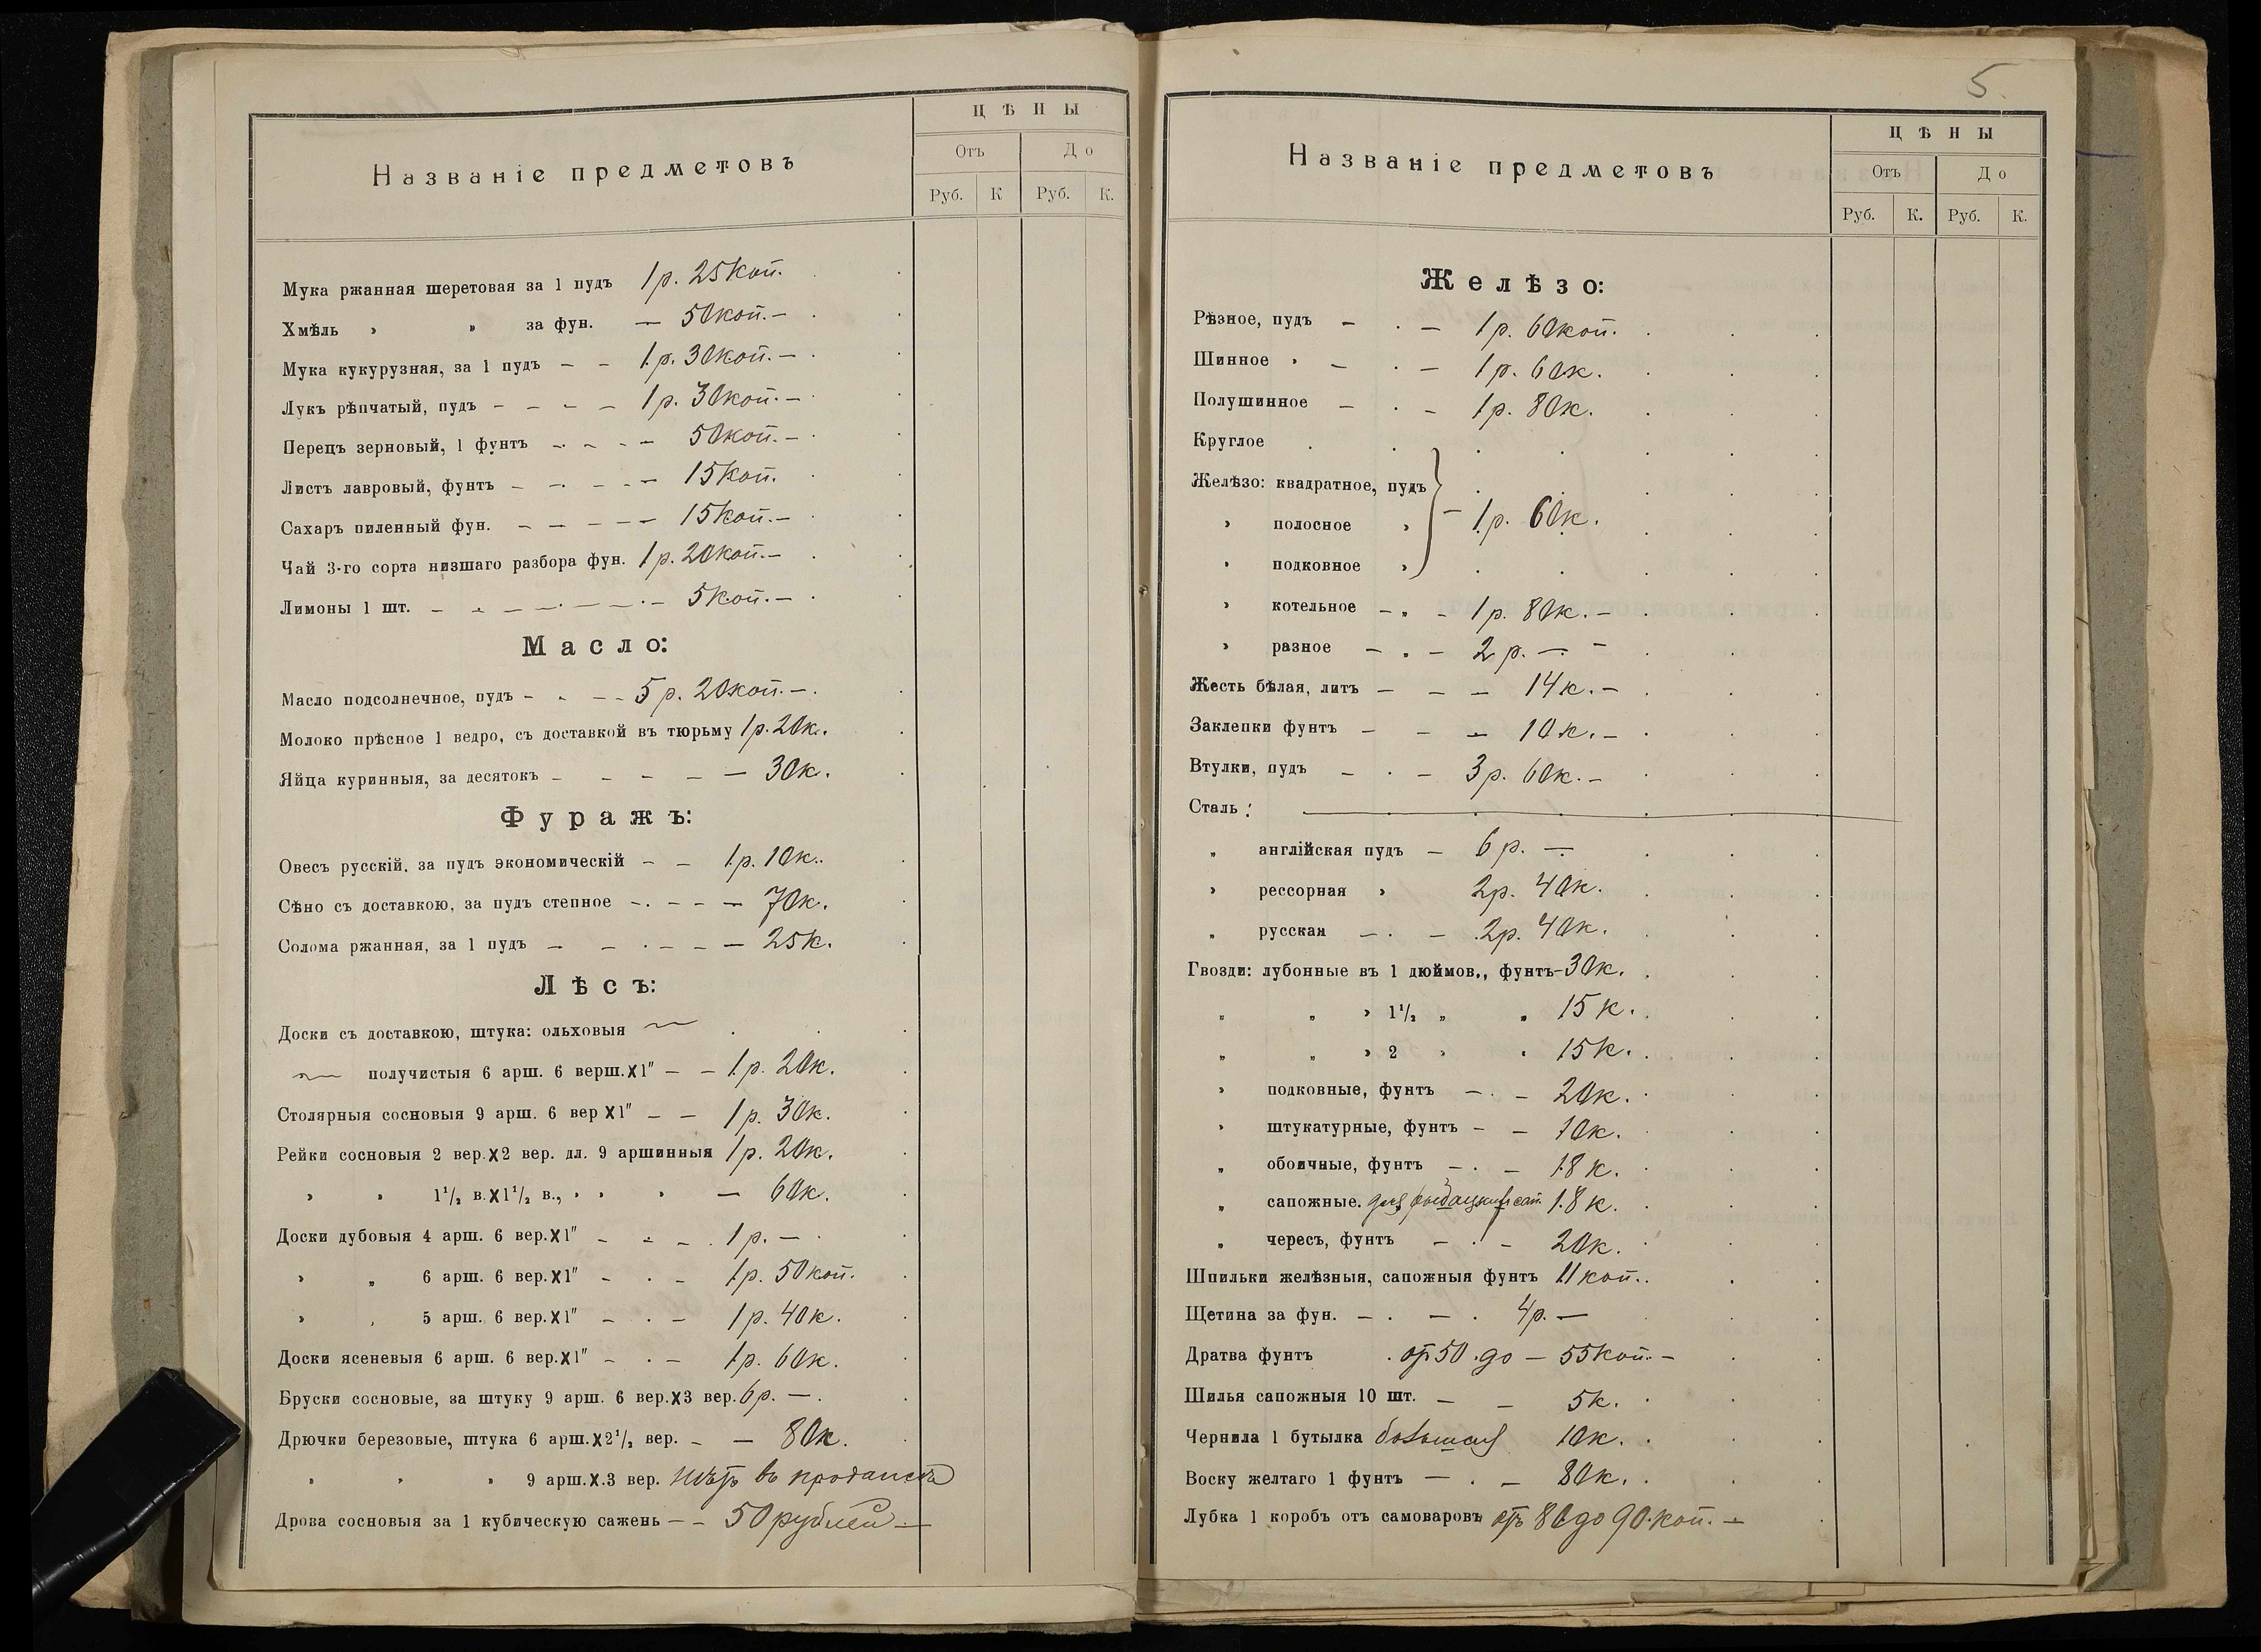 Названіе предметовъ
ЦѢНЫ
Отъ До
Руб. К Руб. К.
Мука ржанная шеретовая за 1 пудъ 1 р. 25 коп.
Хмѣль › „ за фун. — 50 коп. —
Мука кукурузная, за 1 пудъ — — 1 р. 30 коп. —
Лукъ рѣпчатый, пудъ — — — — 1 р. 30 коп. —
Перецъ зерновый, 1 фунтъ — — — 50 коп. —
Листъ лавровый, фунтъ — — — — 15 коп.
Сахаръ пиленный фун. — — — — — 15 коп. —
Чай 3-го сорта низшаго разбора фун. 1 р. 20 коп. —
Лимоны 1 шт. — — — — — 5 коп. —
Масло:
Масло подсолнечное, пудъ — — — 5 р. 20 коп. —
Молоко прѣсное 1 ведро, съ доставкой въ тюрьму 1 р. 20 к.
Яйца куринныя, за десятокъ — — — — — 30 к.
Фуражъ:
Овесъ русскій, за пудъ экономическій — — 1 р. 10 к.
Сѣно съ доставкою, за пудъ степное — — — — 70 к.
Солома ржанная, за 1 пудъ — — — — — 25 к.
Лѣсъ:
Доски съ доставкою, штука: ольховыя —
— получистыя 6 арш. 6 верш.X1" — — 1 р. 20 к.
Столярныя сосновыя 9 арш. 6 вер X1" — — 1 р. 30 к.
Рейки сосновыя 2 вер.X2 вер. дл. 9 аршинныя 1 р. 20 к.
› › 1½ в.X1½ в., › › › — 60 к.
Доски дубовыя 4 арш. 6 вер.X1" — — — 1 р. —
› „ 6 арш. 6 вер.X1" — . — 1 р. 50 коп.
› , 5 арш. 6 вер.X1" — . — 1 р. 40 к.
Доски ясеневыя 6 арш. 6 вер.X1" — . — 1 р. 60 к.
Бруски сосновые, за штуку 9 арш. 6 вер.X3 вер. 6 р. —
Дрючки березовые, штука 6 арш.X2½ вер. — — 80 к.
› › › 9 арш.X.3 вер. нѣтъ въ продажѣ
Дрова сосновыя за 1 кубическую сажень — — 50 рублей —
5
Названіе предметовъ
ЦѢНЫ
Отъ До
Руб. К. Руб. К.
Желѣзо:
Рѣзное, пудъ — . — 1 р. 60 коп.
Шинное › — . — 1 р. 60 к.
Полушинное — . — 1 р. 80 к.
Круглое
Желѣзо: квадратное, пудъ
› полосное › — 1 р. 60 к.
› подковное ›
› котельное — „ — 1 р. 80 к. —
› разное — „ — 2 р. — —
Жесть бѣлая, литъ — — — 14 к. —
Заклепки фунтъ — — — 10 к. —
Втулки, пудъ — . — 3 р. 60 к. —
Сталь:
„ англійская пудъ — 6 р. —
› рессорная › 2 р. 40 к.
„ русская — . — 2 р. 40 к.
Гвозди: лубонные въ 1 дюймов., фунтъ — 30 к.
„ „ › 1½ „ „ 15 к.
„ „ › 2 › › 15 к.
› подковные, фунтъ — . — 20 к.
› штукатурные, фунтъ — — 10 к.
„ обоичные, фунтъ — . — 18 к.
„ сапожные. для сап. 18 к.
„ чересъ, фунтъ — . — 20 к.
Шпильки желѣзныя, сапожныя фунтъ 11 коп.
Щетина за фун. — . — . 4 р. —
Дратва фунтъ . отъ 50 до — 55 коп. —
Шилья сапожныя 10 шт. — — 5 к.
Чернила 1 бутылка большая 10 к.
Воску желтаго 1 фунтъ — . — 80 к.
Лубка 1 коробъ отъ самоваровъ отъ 80 до 90 коп. —